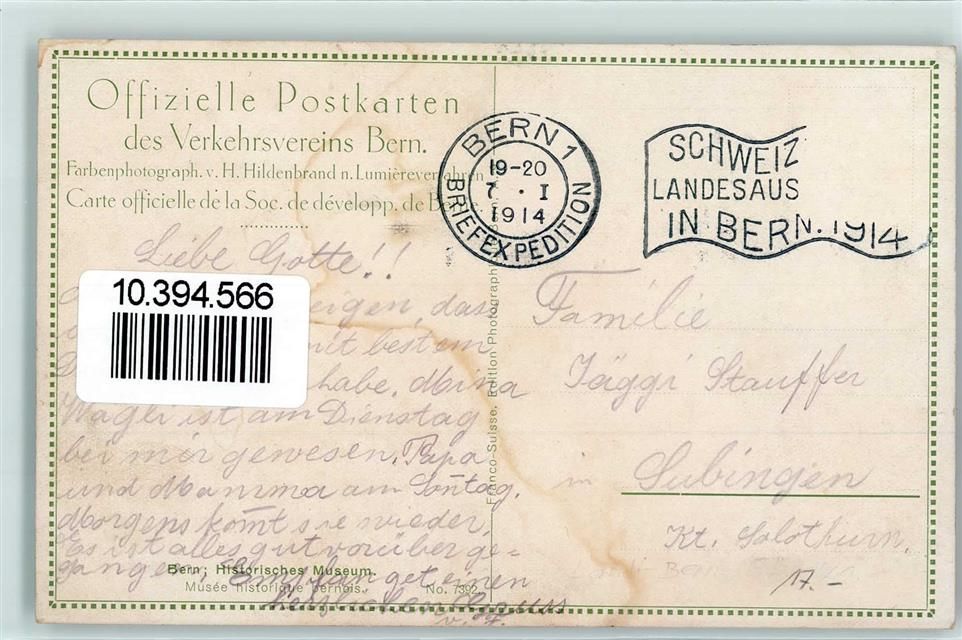 Offizielle Postkarten
des Verkehrsvereins Bern.
Farbenphotograph. v. H. Hildenbrand n. Lumièreverfahren
Carte officielle de la Soc. de développ. de Be
BERN 1
19-20
7 . I
1914
BRIEFEXPEDITION
SCHWEIZ
LANDESAUS
IN BERN. 1914
Liebe Gotte!!
10.394.566
eigen, das
mit bestem
habe. Mina
Wagli ist am Dienstag
bei mir gewesen. Papa
und Mamma am Sontag.
Morgens komt sie wieder.
Es ist alles gut vorüber ge=
gangen. Empfanget einen
herzlichen Gruss
v.
Bern; Historisches Museum.
Musée historique bernois.
No. 7392
Franco-Suisse, Edition Photograph
Familie
Jäggi Stauffer
in Subingen
Kt. Solothurn.
17.-